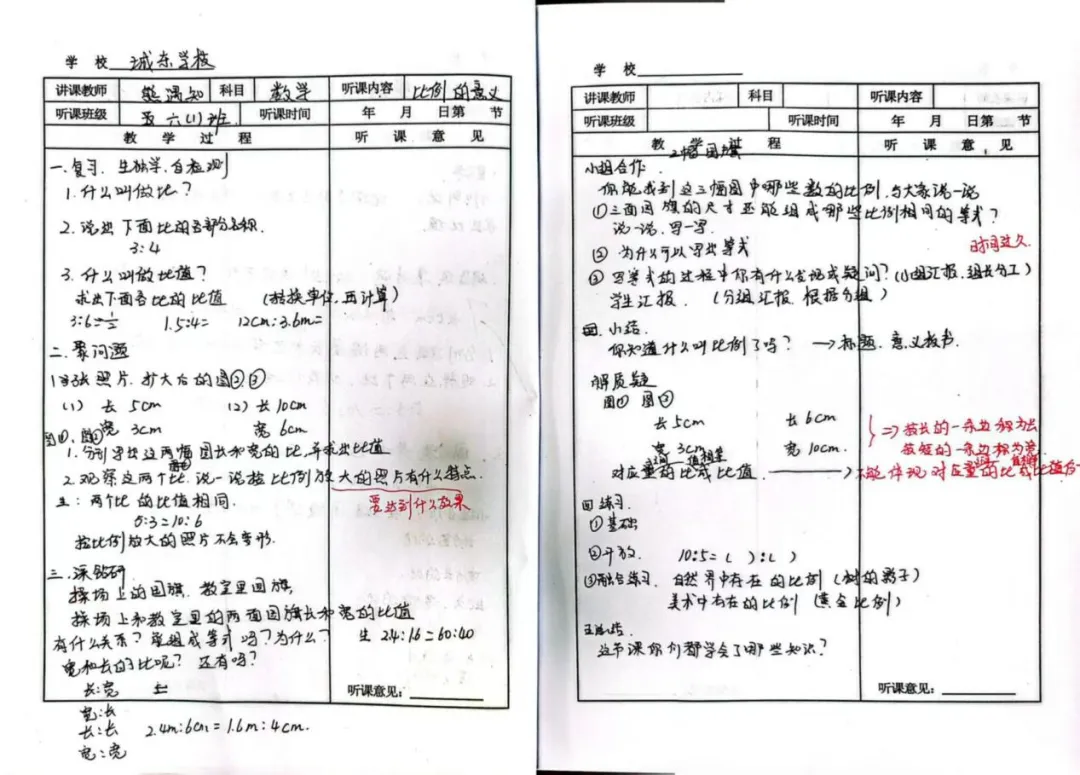 学 校 城东学校
讲课教师 科目 数学 听课内容 比例的意义
听课班级 六(1)班 听课时间 年 月 日第 节
教 学 过 程 听 课 意 见
一.复习. 生独学.自检测
1.什么叫做比?
2.说出下面比的各部分名称.
3:4
3.什么叫做比值?
求出下面各比的比值 (转换单位,再计算)
3:6=½ 1.5:4= 12cm:3.6m=
二.聚问题
照片.扩大后的图②,③
(1) 长 5cm (2) 长 10cm
宽 3cm 宽 6cm
图①、图②
1.分别写出这两幅图长和宽的比,并求出比值
2.观察这两个比.说一说按比例放大的照片有什么特点.
要达到什么效果
生:两个比的比值相同.
5:3=10:6
按比例放大的照片不会变形.
三.深钻研
操场上的国旗.教室里国旗,
操场上和教室里的两面国旗长和宽的比值
有什么关系?能组成等式吗?为什么? 生 2.4:1.6=60:40
宽和长的比呢? 还有吗?
长:宽
宽:长
长:长 2.4m:6cm=1.6m:4cm.
宽:宽
听课意见:
学 校
讲课教师 科目 听课内容
听课班级 听课时间 年 月 日第 节
教 学 过 程 听 课 意 见
小组合作. 国旗
你能找到这三幅图中哪些数的比例,与大家说一说
①三面国旗的尺寸还能组成哪些比例相同的等式?
说一说.写一写.
时间过久.
② 为什么可以写出等式
③ 写等式的过程中你有什么发现或疑问?(小组汇报.组长分工)
学生汇报. (分组汇报 根据分组)
四.小结.
你知道什么叫比例了吗? →标题.意义板书.
解质疑
图① 图②
长5cm 长6cm
宽3cm 宽10cm.
⇒ 较长的一条边称为长
较短的一条边称为宽
对应量的比或比值 → 不能体现对应量的比或比值
四 练习.
①基础
②开放. 10:5=( ):( )
③融合练习. 自然界中存在的比例(树的影子)
美术中存在的比例(黄金比例)
五.总结.
这节课你们都学会了哪些知识?
听课意见: